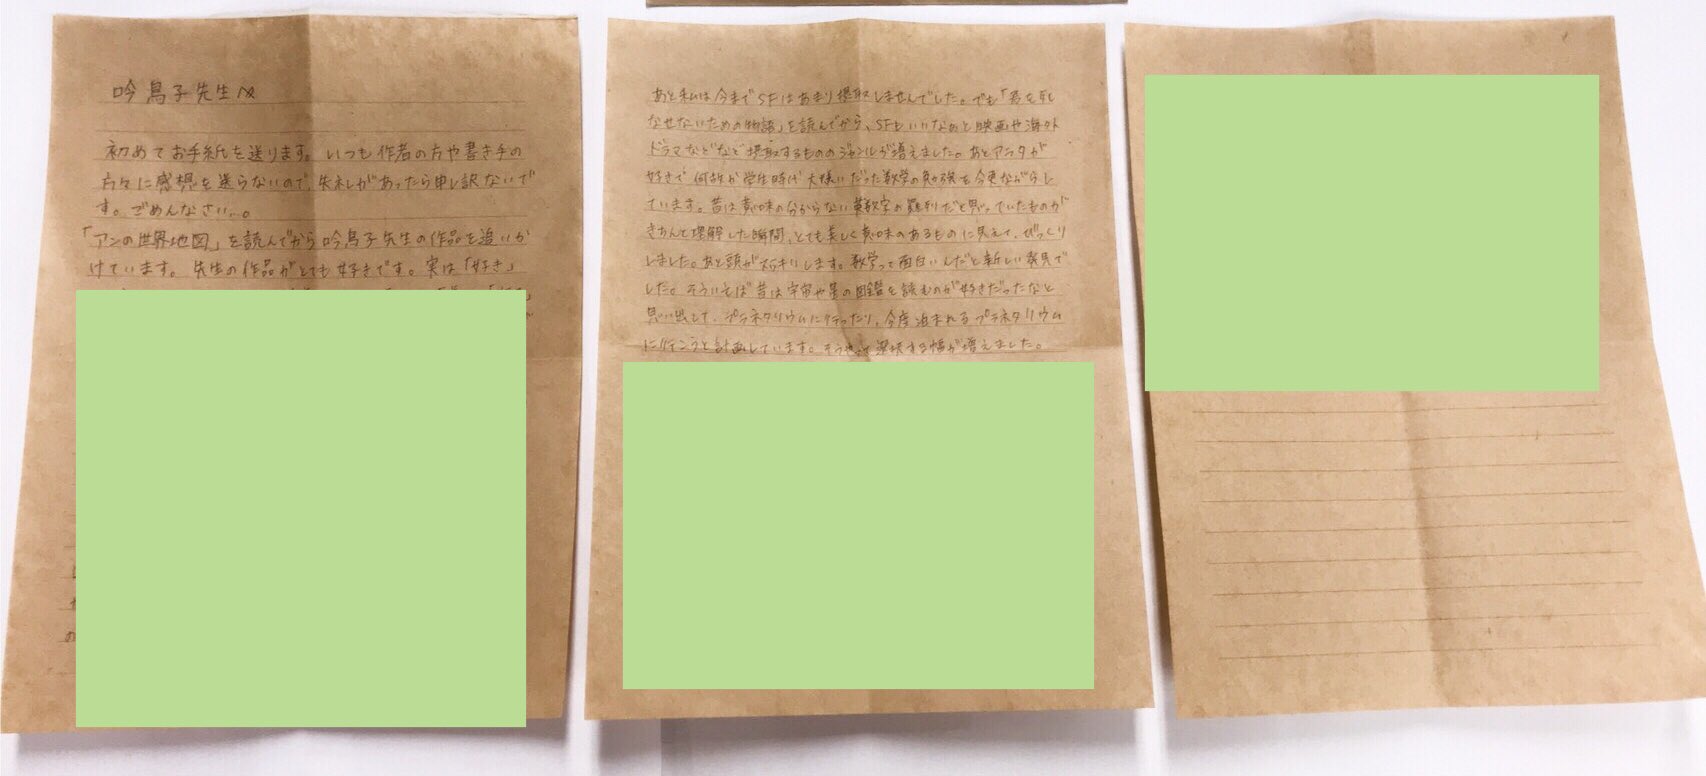 吟鳥子先生へ
初めてお手紙を送ります。いつも作者の方や書き手の
方々に感想を送らないので、失礼があったら申し訳ないで
す。ごめんなさい…。
「アンの世界地図」を読んでから吟鳥子先生の作品を追いか
けています。先生の作品がとても好きです。実は「好き」
の
あと私は今までSFはあまり摂取しませんでした。でも「君を死
なせないための物語」を読んでから、SFもいいなあと映画や海外
ドラマなどなど摂取するもののジャンルが増えました。あとアラタが
好きで何故か学生時代大嫌いだった数学の勉強を今更ながらし
ています。昔は意味の分からない英数字の羅列だと思っていたものが
きちんと理解した瞬間、とても美しく意味のあるものに見えて、びっくり
しました。あと頭がスッキリします。数学って面白いんだと新しい発見で
した。そういえば昔は宇宙や星の図鑑を読むのが好きだったなと
思い出して、プラネタリウムに行ったり、今度泊まれるプラネタリウム
に行こうと計画しています。そうやって選択する幅が増えました。